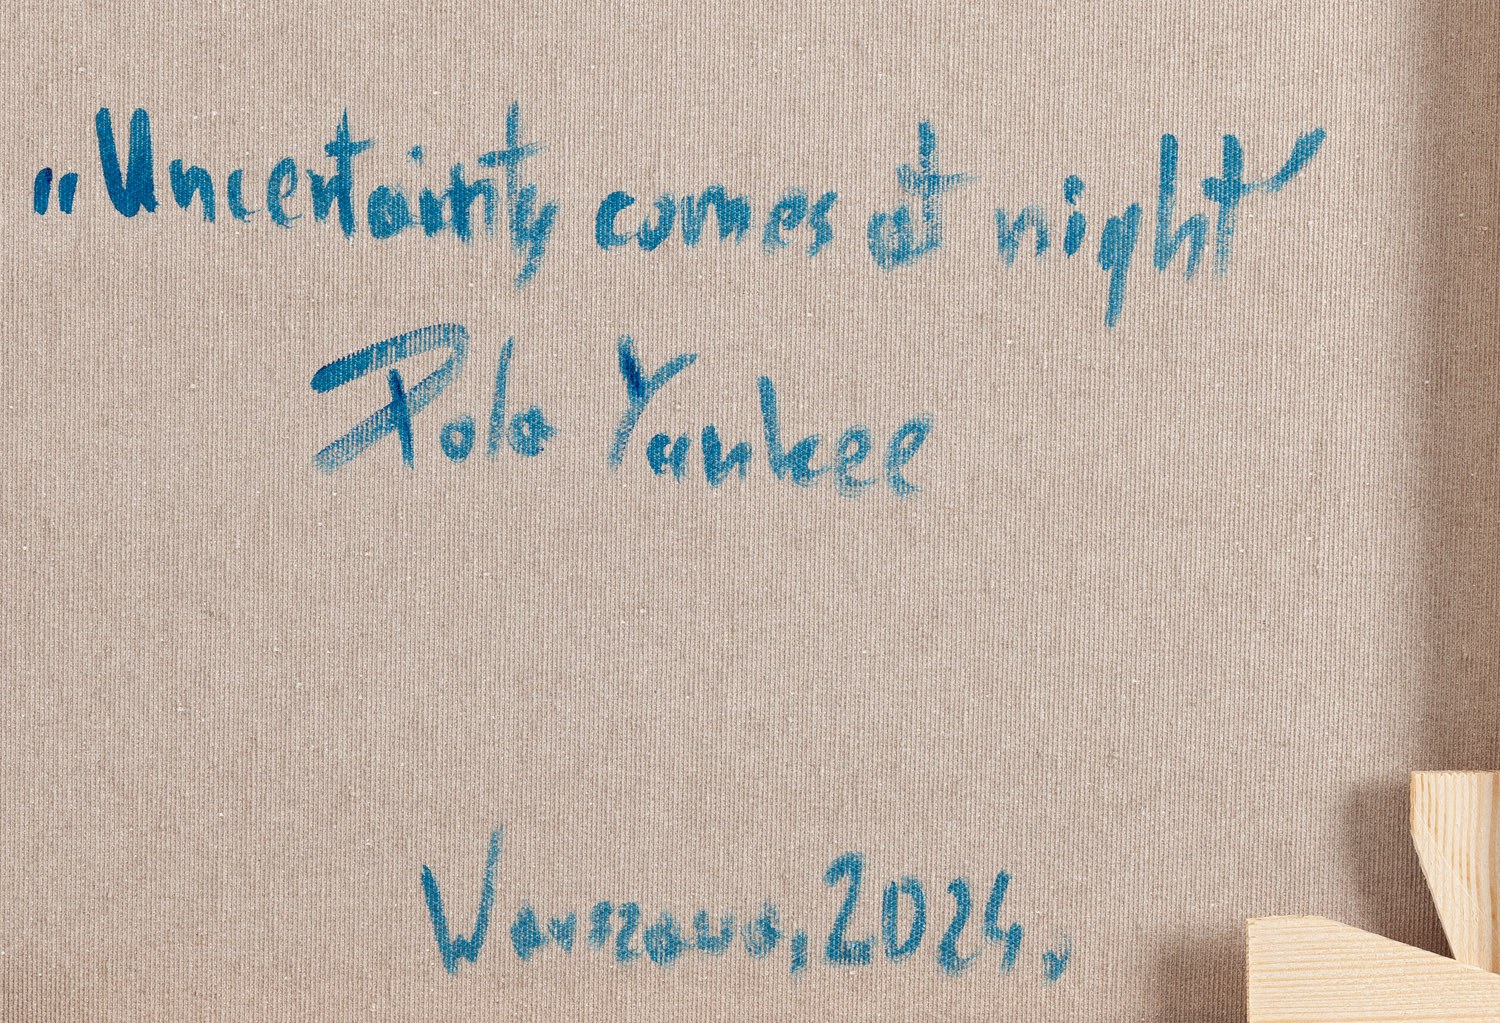 „Uncertainty comes at night"
Polo Yankee
Warszawa, 2024r